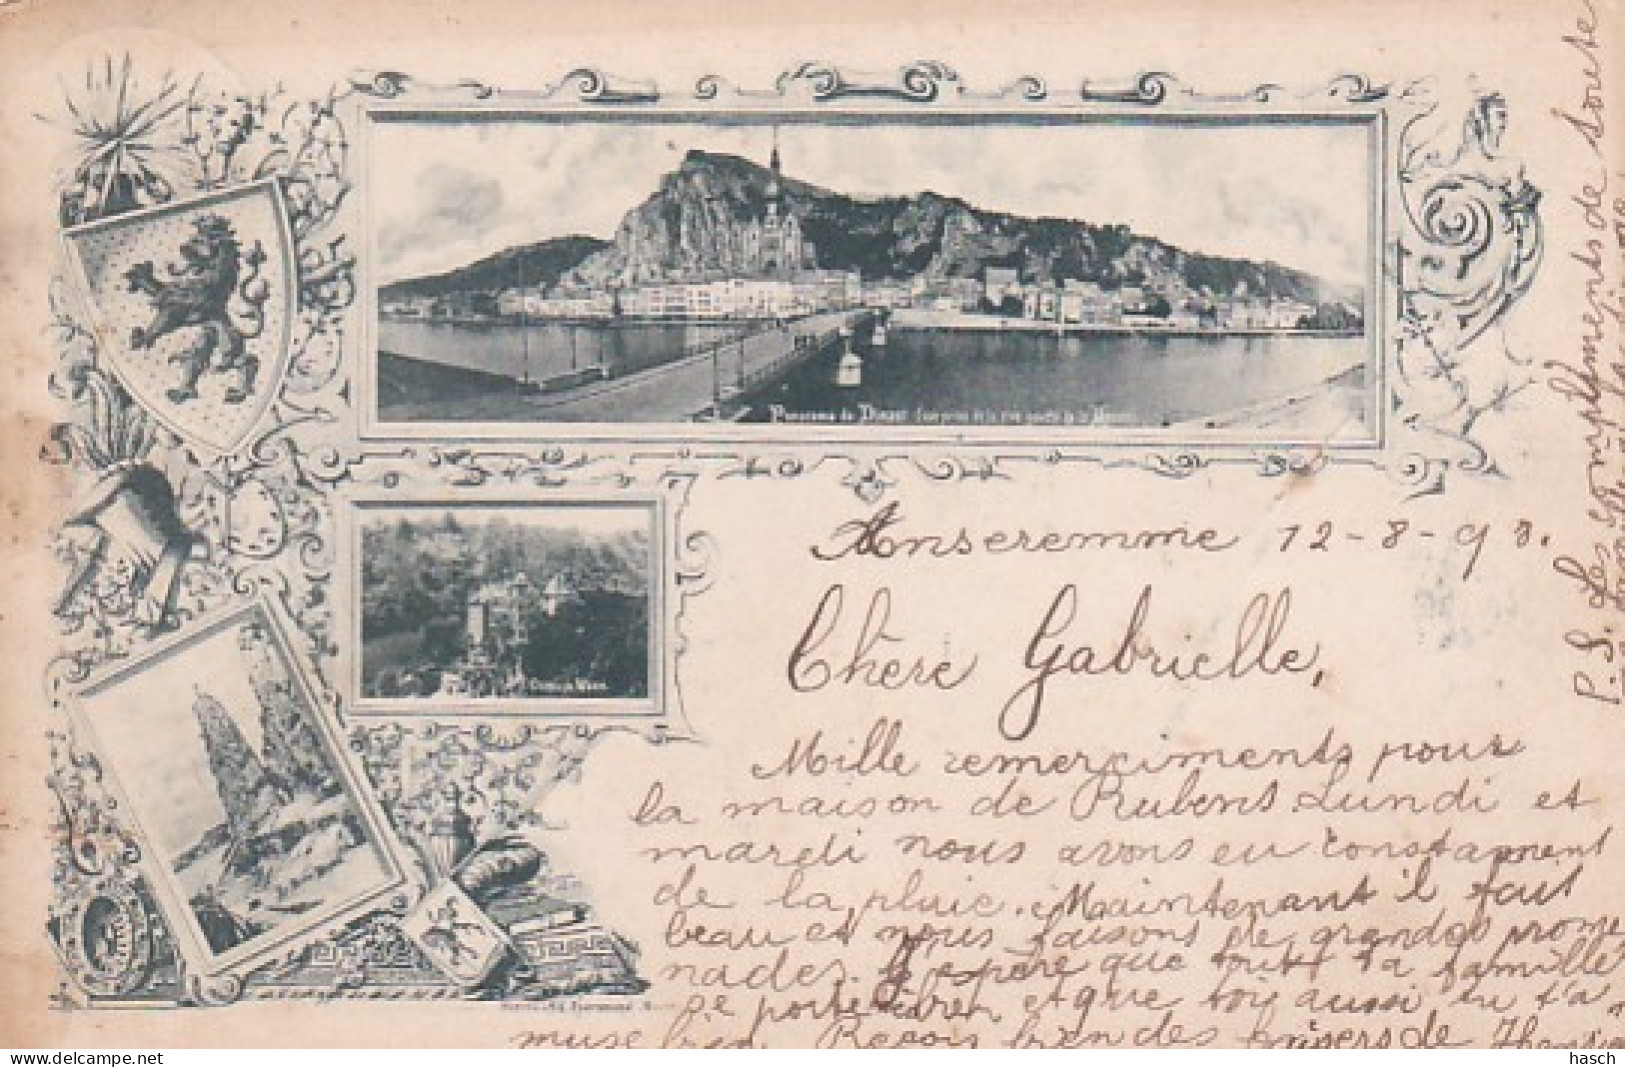 Panorama de Dinant (Vue prise de la rive gauche de la Meuse)
Anseremme 12-8-98.
Chère Gabrielle,
Mille remerciments pour
la maison de Rubens. Lundi et
mardi nous avons eu constamment
de la pluie. Maintenant il fait
beau et nous faisons de grandes prome
nades. J'espère que toute ta famille
se porte bien et que toi aussi tu t'a
muse bien. Reçois bien des baisers de
P.S. Les compliments de toute
la famille
hasch